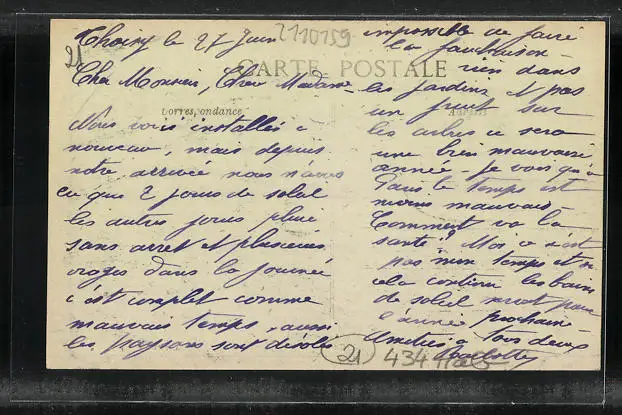 Thoiry le 27 Juin
2110159
21
CARTE POSTALE
Cher Monsieur, Chère Madame
Correspondance
Nous voici installés à
nouveau, mais depuis
notre arrivée nous n'avons
eu que 2 jours de soleil
les autres jours pluie
sans arret et plusieurs
orages dans la journée
c'est complet comme
mauvais temps, aussi
les paysans sont désolés
impossible de faire
la fauchaison
rien dans
les jardins et pas
un fruit sur
les arbres ce sera
une bien mauvaise
année je vois qu'à
Paris le temps est
moins mauvais
Comment va la
santé? Moi ce n'est
pas mon temps et si
cela continue les bains
de soleil seront pour
l'année prochaine
Amitiés à tous deux
21
434